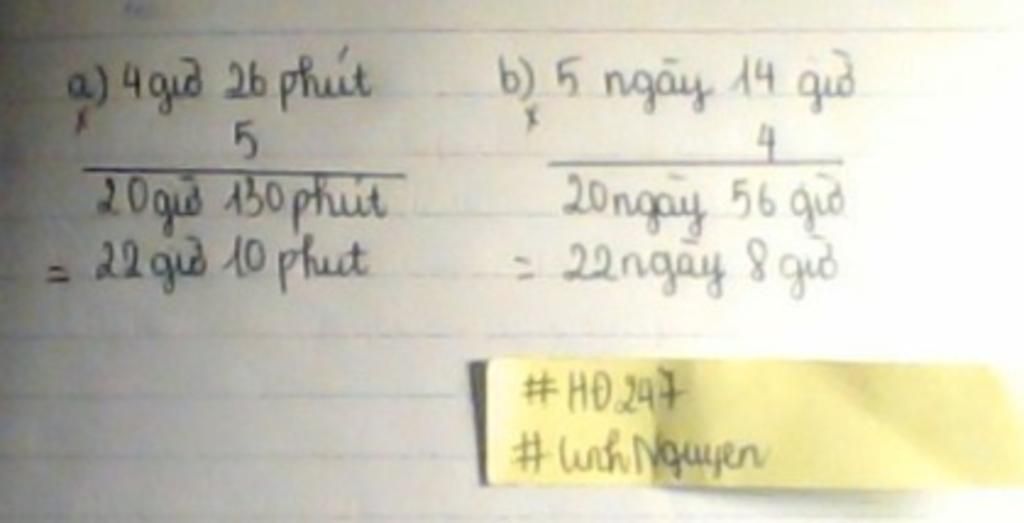 a) 4 giờ 26 phút
x
5
20 giờ 130 phút
= 22 giờ 10 phut
b) 5 ngày 14 giờ
x
4
20 ngày 56 giờ
= 22 ngày 8 giờ
#HĐ247
#LinhNguyen